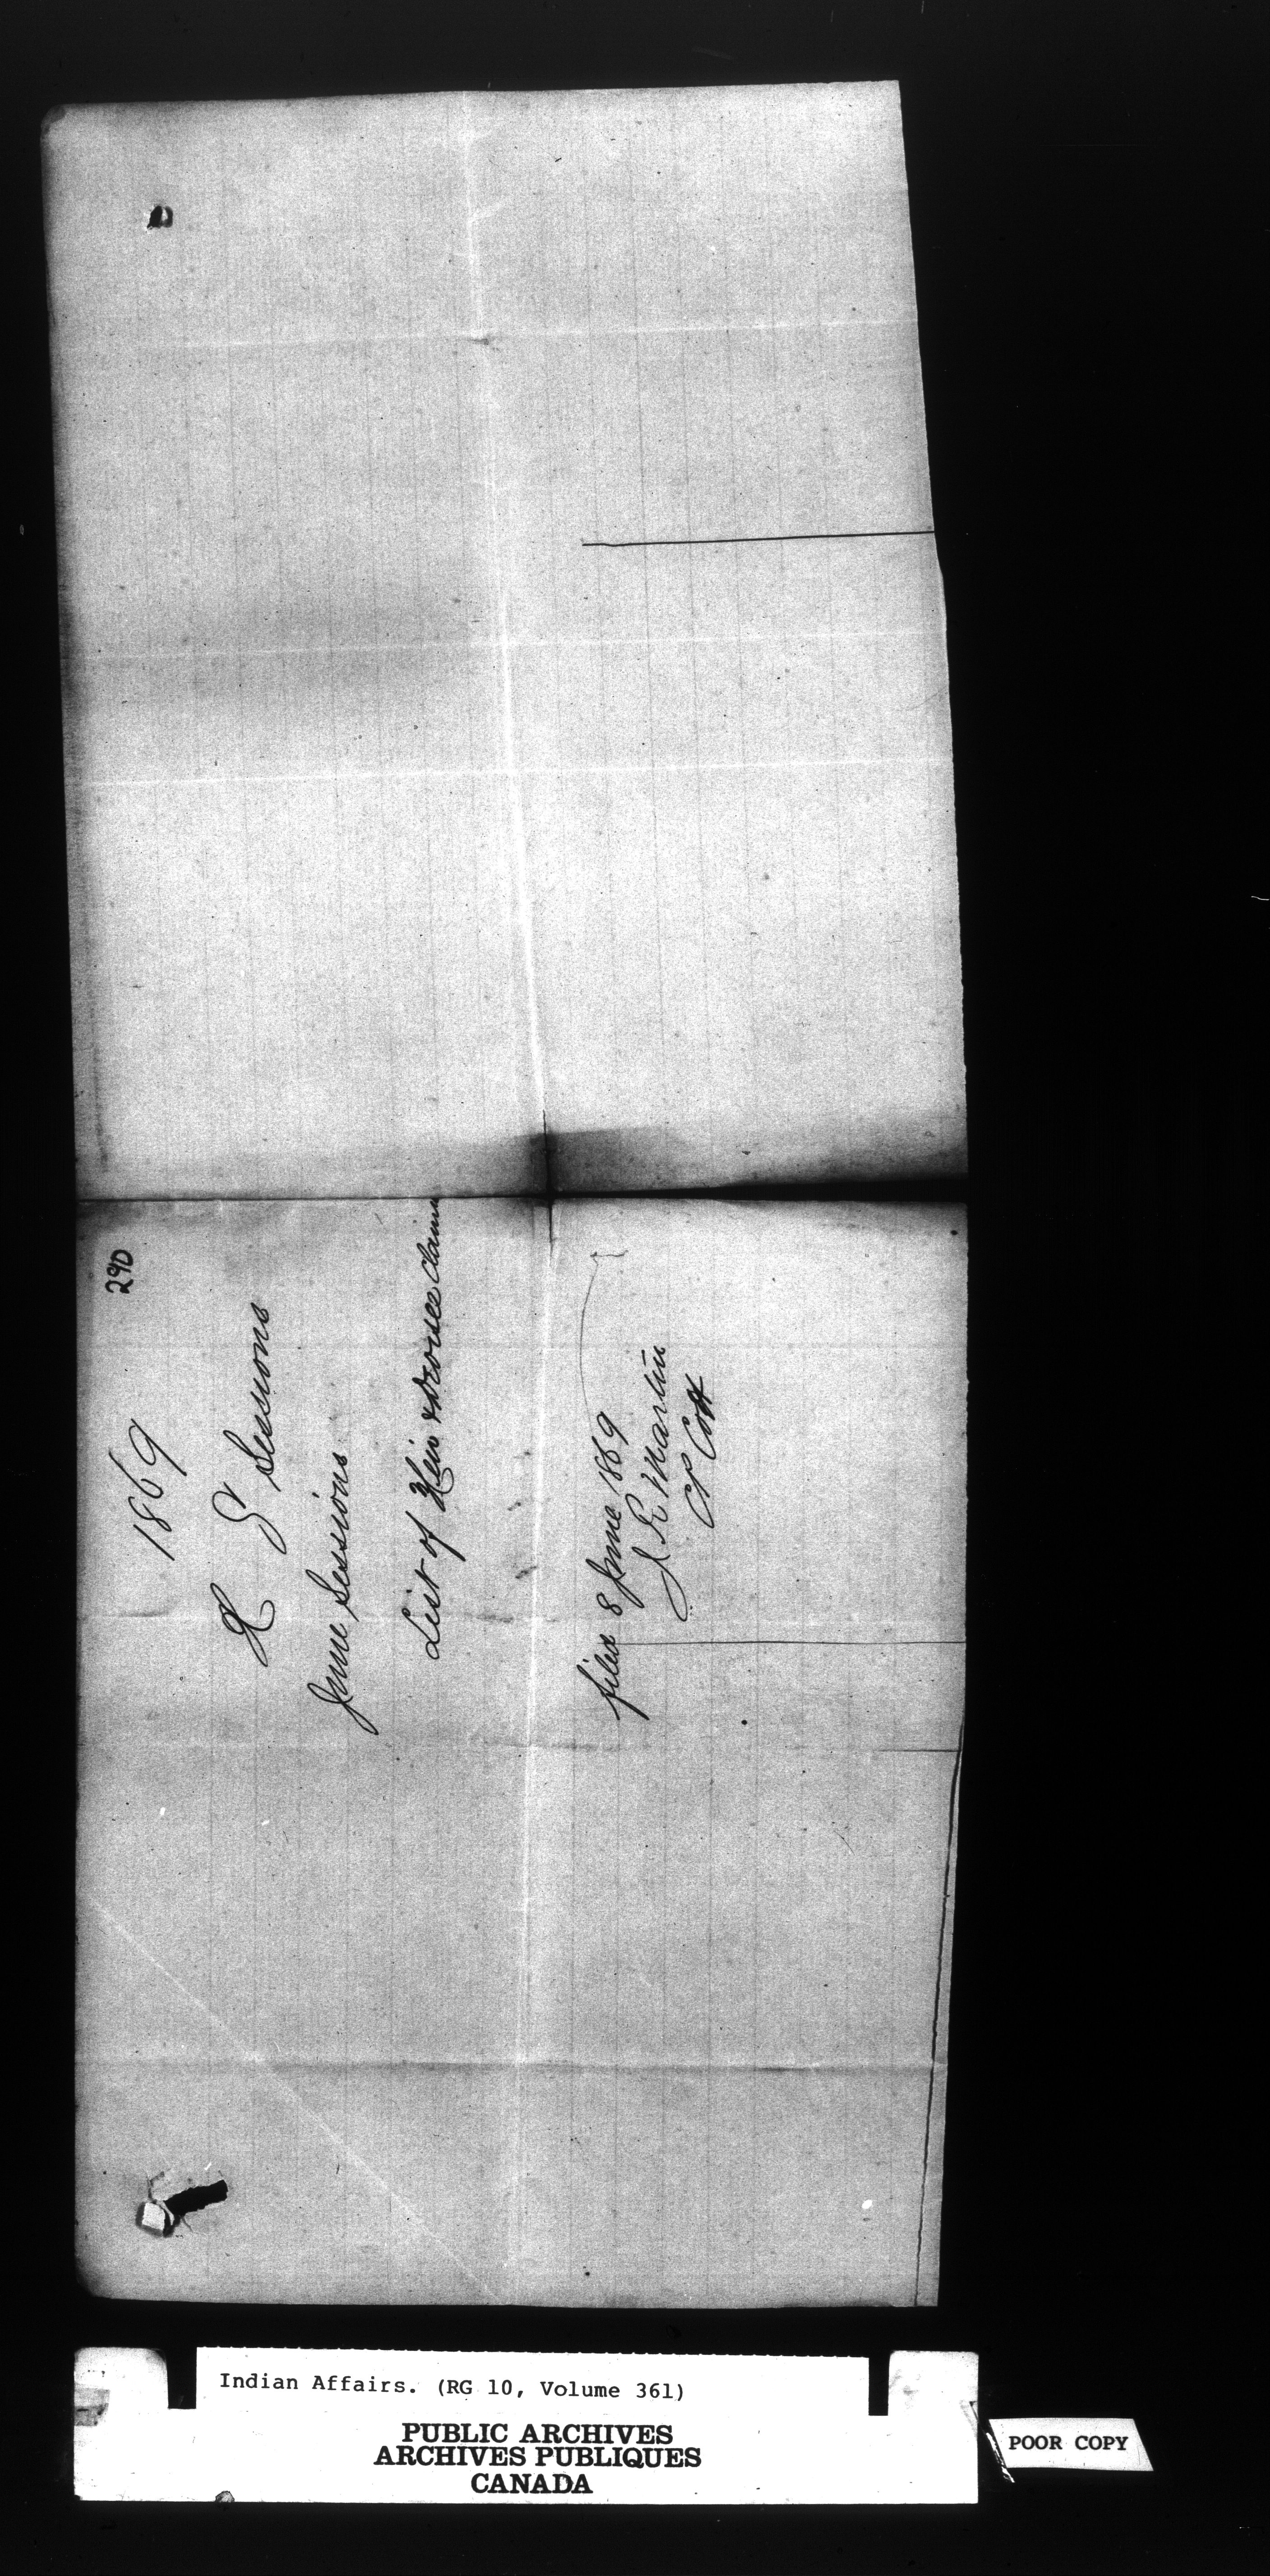 290
1869
Q S Sessions
June Sessions
List of Heir & Devisee Claims
filed 8 June 1869
J R Martin
C P Co H
Indian Affairs. (RG 10, Volume 361)
PUBLIC ARCHIVES
ARCHIVES PUBLIQUES
CANADA
POOR COPY